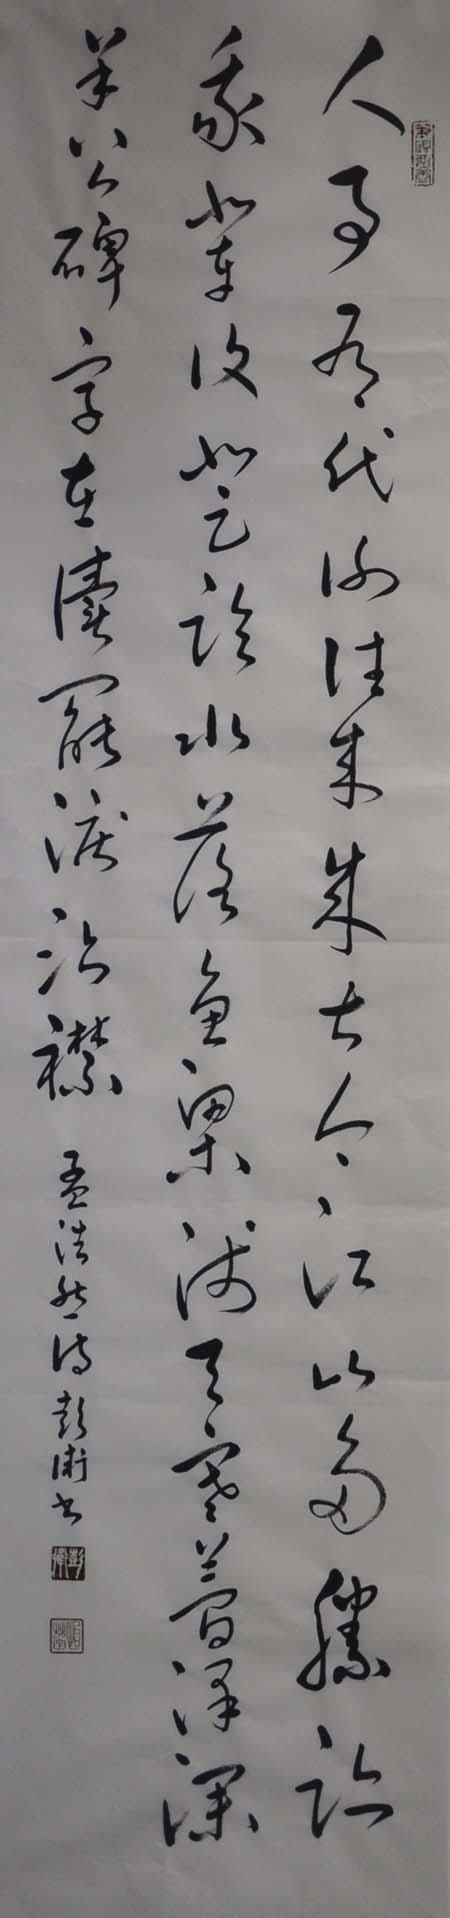 人事有代謝往来成古今江山留勝跡
我輩復登臨水落魚梁淺天寒夢澤深
羊公碑字在讀罷淚沾襟
孟浩然詩彭書